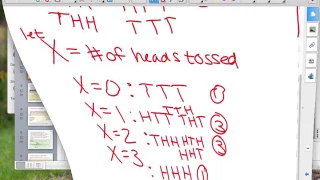 THH TTT
let
X = # of heads tossed
X=0 : TTT ①
X=1 : HTT TTH THT ③
X=2 : THH HTH HHT ③
X=3 : HHH ①